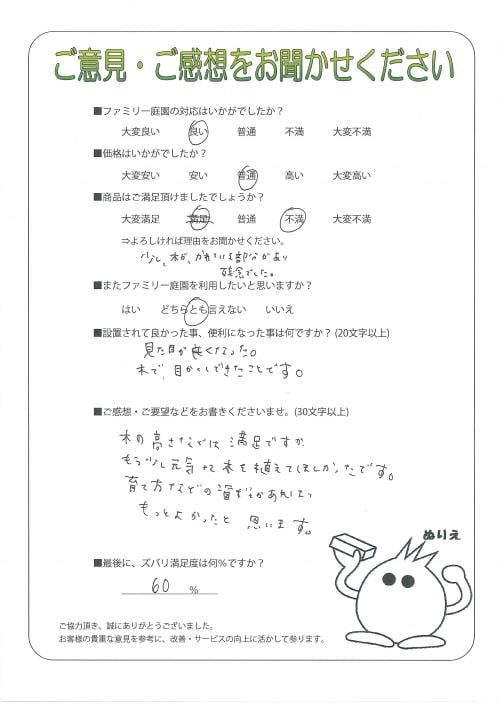 ご意見・ご感想をお聞かせください
■ファミリー庭園の対応はいかがでしたか？
大変良い 良い 普通 不満 大変不満
■価格はいかがでしたか？
大変安い 安い 普通 高い 大変高い
■商品はご満足頂けましたでしょうか？
大変満足 満足 普通 不満 大変不満
⇒よろしければ理由をお聞かせください。
少し、木が、かれている部分があり
残念でした。
■またファミリー庭園を利用したいと思いますか？
はい どちらとも言えない いいえ
■設置されて良かった事、便利になった事は何ですか？(20文字以上)
見た目が良くなった。
木で、目かくしできたことです。
■ご感想・ご要望などをお書きくださいませ。(30文字以上)
木の高さなどは満足ですが
もう少し元気な木を植えてほしかったです。
育て方などの資料があれば、
もっとよかったと思います。
ぬりえ
■最後に、ズバリ満足度は何％ですか？
60 ％
ご協力頂き、誠にありがとうございました。
お客様の貴重な意見を参考に、改善・サービスの向上に活かして参ります。